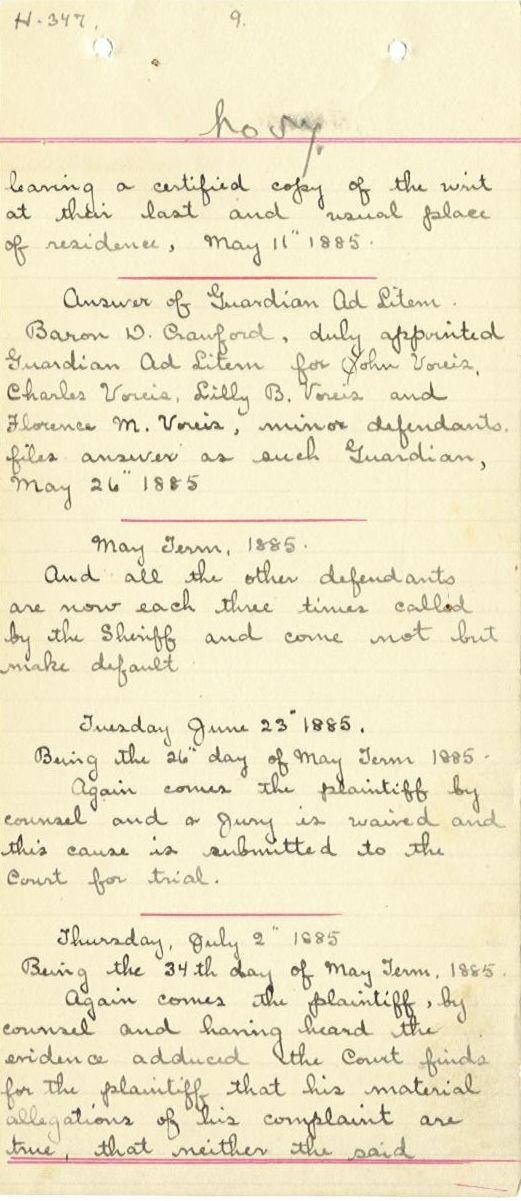 H-347.
9.
leaving a certified copy of the writ
at their last and usual place
of residence, May 11" 1885.
Answer of Guardian Ad Litem.
Baron D. Crawford, duly appointed
Guardian Ad Litem for John Voreis,
Charles Voreis, Lilly B. Voreis and
Florence M. Voreis, minor defendants.
files answer as such Guardian,
May 26" 1885
May Term, 1885.
And all the other defendants
are now each three times called
by the Sheriff and come not but
make default
Tuesday June 23" 1885.
Being the 26" day of May Term 1885.
Again comes the plaintiff by
counsel and a Jury is waived and
this cause is submitted to the
Court for trial.
Thursday, July 2" 1885
Being the 34th day of May Term, 1885.
Again comes the plaintiff, by
counsel and having heard the
evidence adduced the Court finds
for the plaintiff that his material
allegations of his complaint are
true, that neither the said